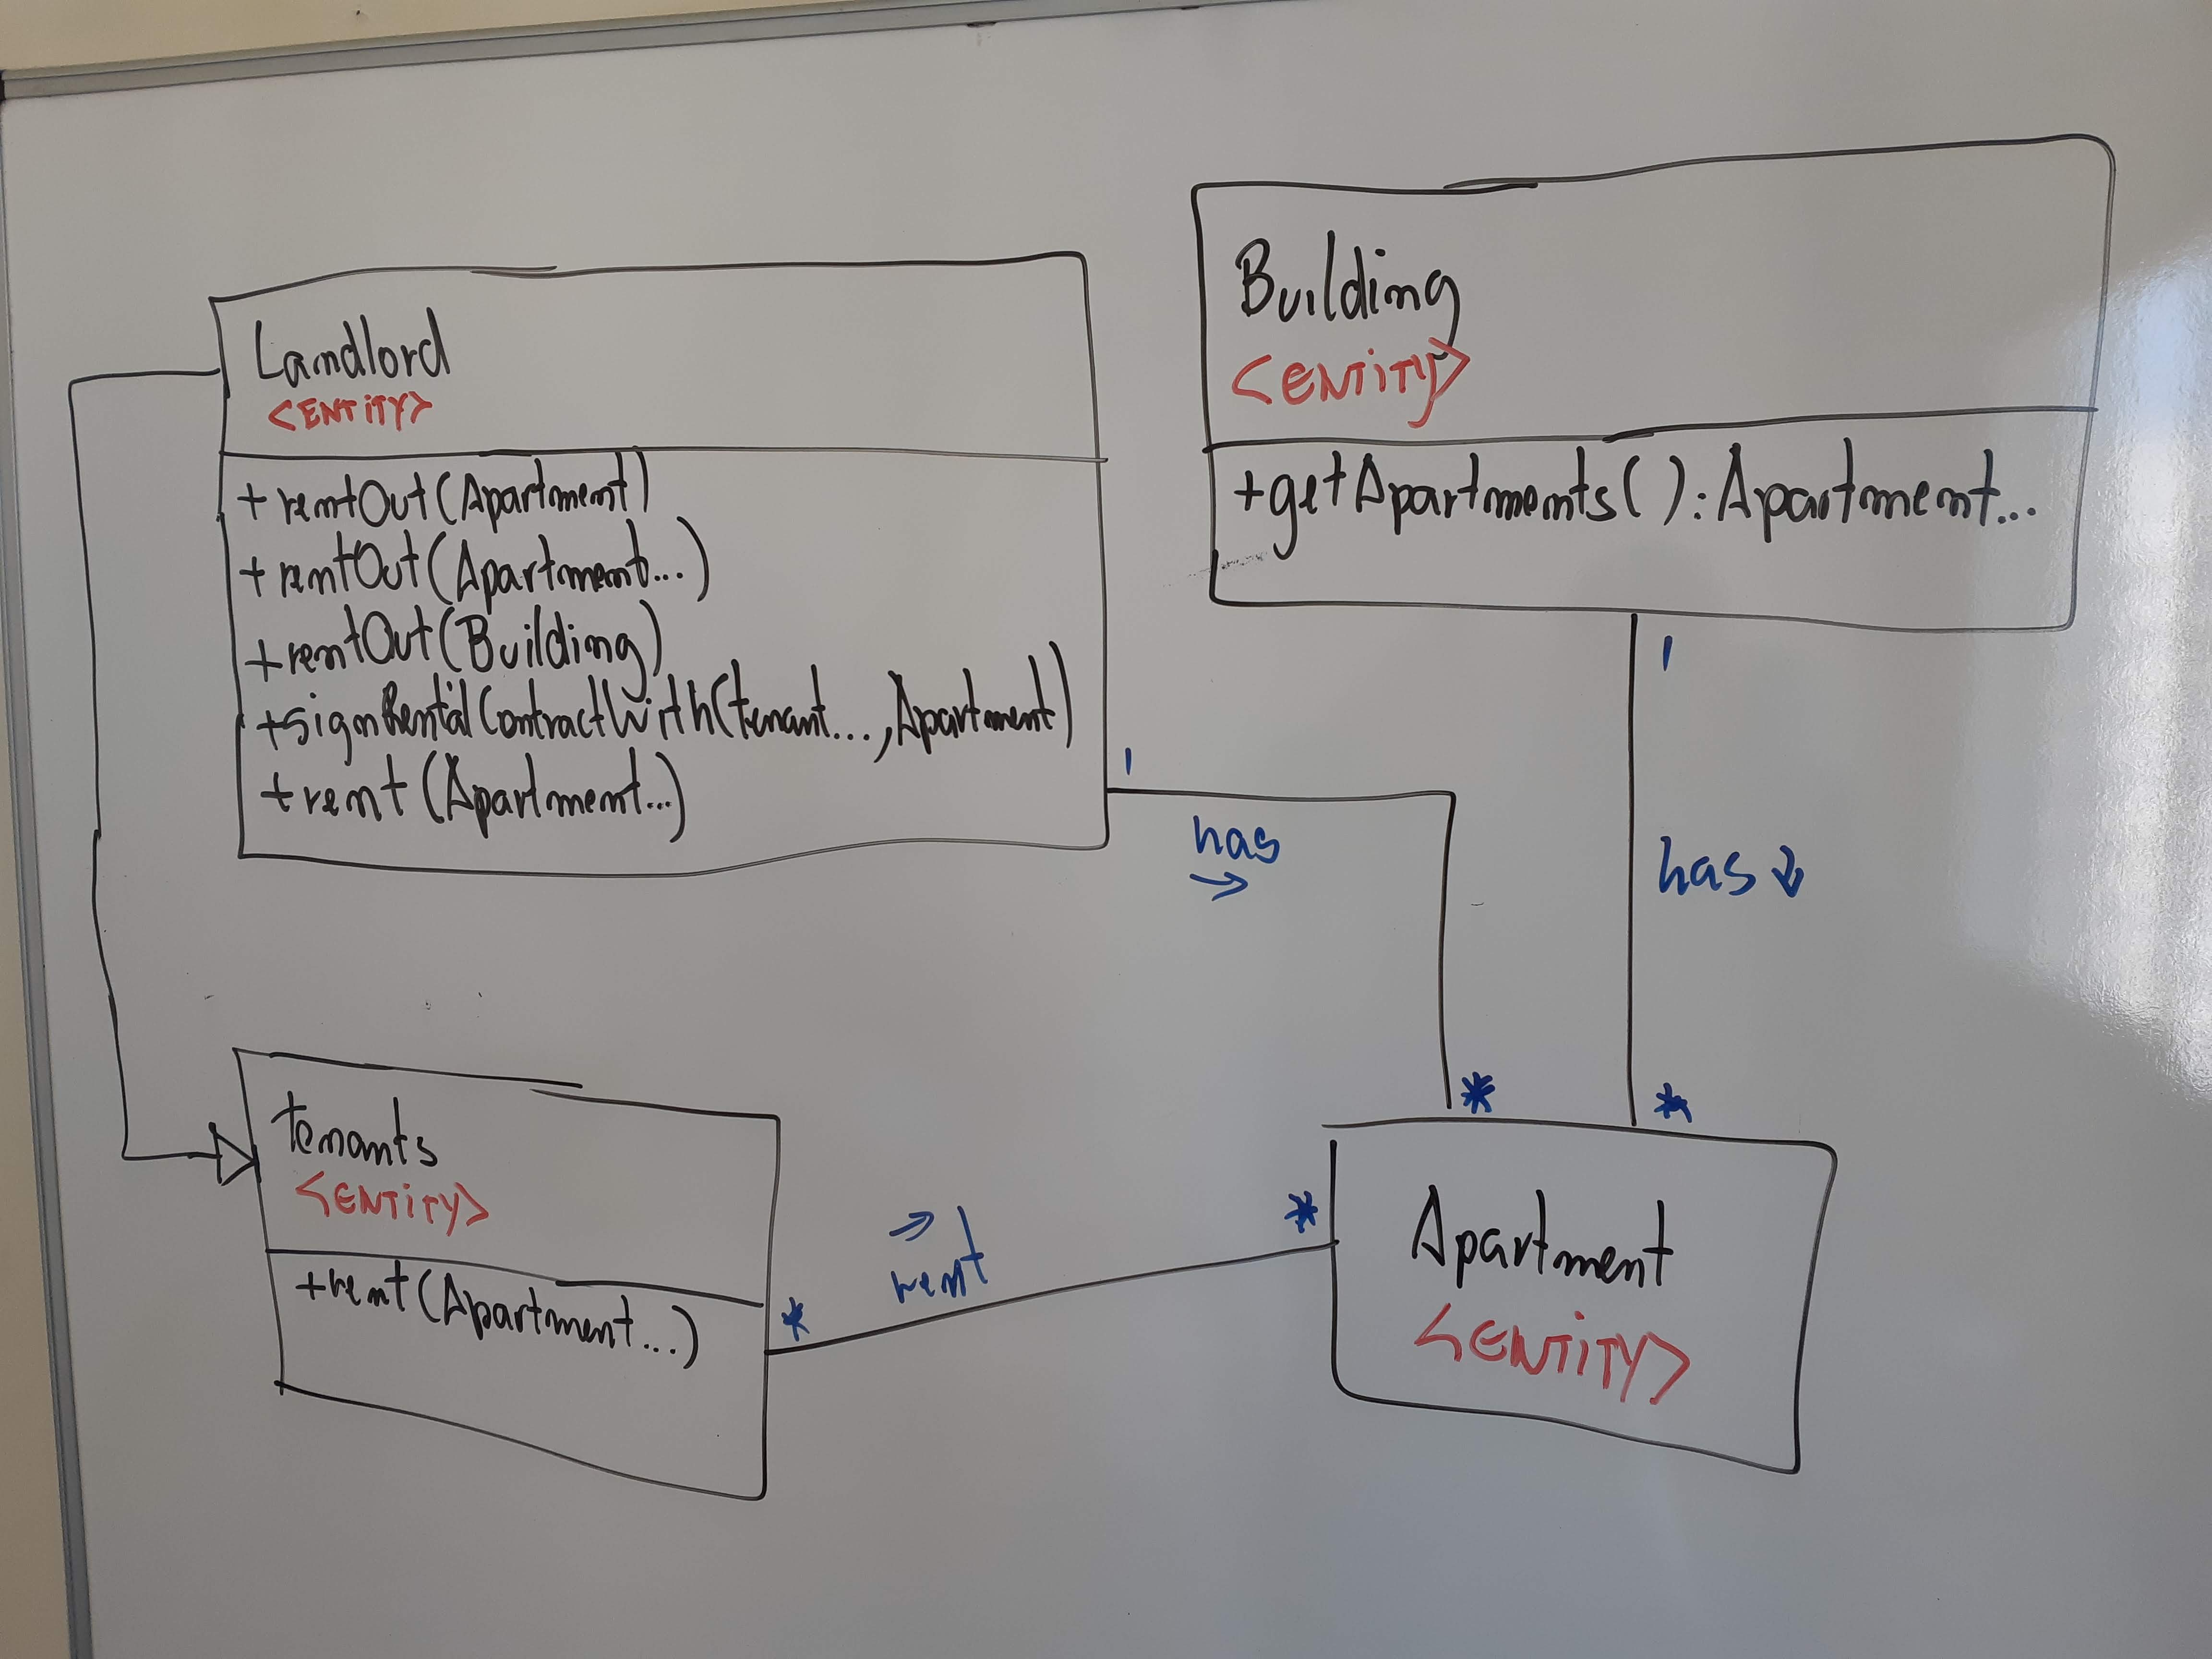 Landlord
<ENTITY>
+rentOut(Apartment)
+rentOut(Apartment...)
+rentOut(Building)
+signRentalContractWith(tenant...,Apartment)
+rent(Apartment...)
Building
<ENTITY>
+getApartments():Apartment...
1
has
→
1
has ↓
*
*
tenants
<ENTITY>
+rent(Apartment...)
*
→
rent
*
Apartment
<ENTITY>